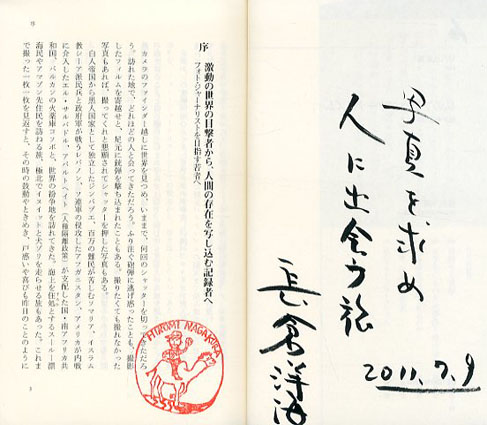 写真を求め
人に出会う旅
長倉洋海
2011.7.9
序
序　激動の世界の目撃者から、人間の存在を写し込む記録者へ
フォト・ジャーナリストを目指す若者へ
カメラのファインダー越しに世界を見つめ、いままで、何回のシャッターを切ってきただろ
う。訪れた地で、どれほどの人と会ってきただろう。ふり注ぐ砲弾に逃げ惑ったことも、撮影
したフィルムを寄越せと、足元に銃弾を撃ち込まれたこともある。撮りたくても撮れなかった
写真もあれば、撮ってくれと懇願されてシャッターを押した写真もある。
白人帝国から黒人国家として独立したジンバブエ、百万の難民が苦しむソマリア、イスラム
教シーア派民兵と政府軍が戦うレバノン、ソ連軍の侵攻したアフガニスタン、アメリカが内戦
に介入したエル・サルバドル、アパルトヘイト（人種隔離政策）が支配した国・南アフリカ共
和国、バルカンの火薬庫コソボと、世界の紛争地を訪れてきた。海上を住処とするスールー漂
海民やアマゾン先住民を訪ねる旅、極北でイヌイットと犬ゾリを走らせる旅もあった。これま
で撮った一枚一枚を見返すと、その時の鼓動やときめき、戸惑いや喜びも昨日のことのように
3
HIROMI NAGAKURA